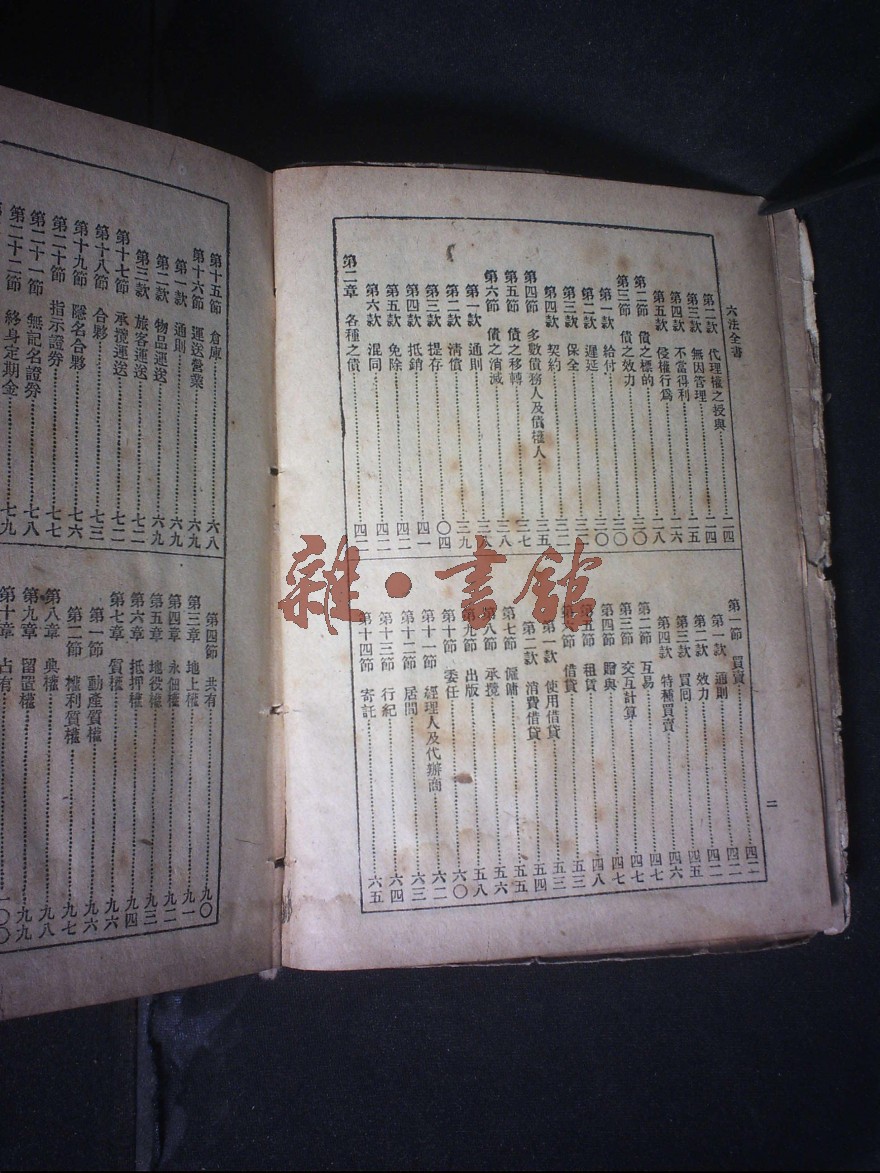 六法全書
第二款 代理權之授與 二四
第三款 無因管理 二五
第四款 不當得利 二六
第五款 侵權行爲 二八
第二節 債之標的 三〇
第三節 債之效力 三〇
第一款 給付 三〇
第二款 遲延 三一
第三款 保全 三二
第四款 契約 三二
第四節 多數債務人及債權人 三五
第五節 債之移轉 三七
第六節 債之消滅 三八
第一款 通則 三八
第二款 清償 三九
第三款 提存 四〇
第四款 抵銷 四一
第五款 免除 四二
第六款 混同 四二
第二章 各種之債 四二
第一節 買賣 四二
第一款 通則 四二
第二款 效力 四二
第三款 買囘 四五
第四款 特種買賣 四六
第二節 互易 四七
第三節 交互計算 四七
第四節 贈與 四八
第五節 租賃
第六節 借貸 五三
第一款 使用借貸 五三
第二款 消費借貸 五四
第七節 僱傭 五五
第八節 承攬 五六
第九節 出版 五八
第十節 委任 六〇
第十一節 經理人及代辦商 六二
第十二節 居間 六三
第十三節 行紀 六四
第十四節 寄託 六五
二
第十五節 倉庫 六八
第十六節 運送營業 六九
第一款 通則 六九
第二款 物品運送 六九
第三款 旅客運送 七二
第十七節 承攬運送 七二
第十八節 合夥 七三
第十九節 隱名合夥 七六
第二十節 指示證券 七七
第二十一節 無記名證券 七八
第二十二節 終身定期金 七九
第四節 共有 九〇
第三章 地上權 九一
第四章 永佃權 九二
第五章 地役權 九三
第六章 抵押權 九四
第七章 質權 九六
第一節 動產質權 九六
第二節 權利質權 九七
第八章 典權 九八
第九章 留置權 九九
第十章 占有 一〇〇
雜·書館